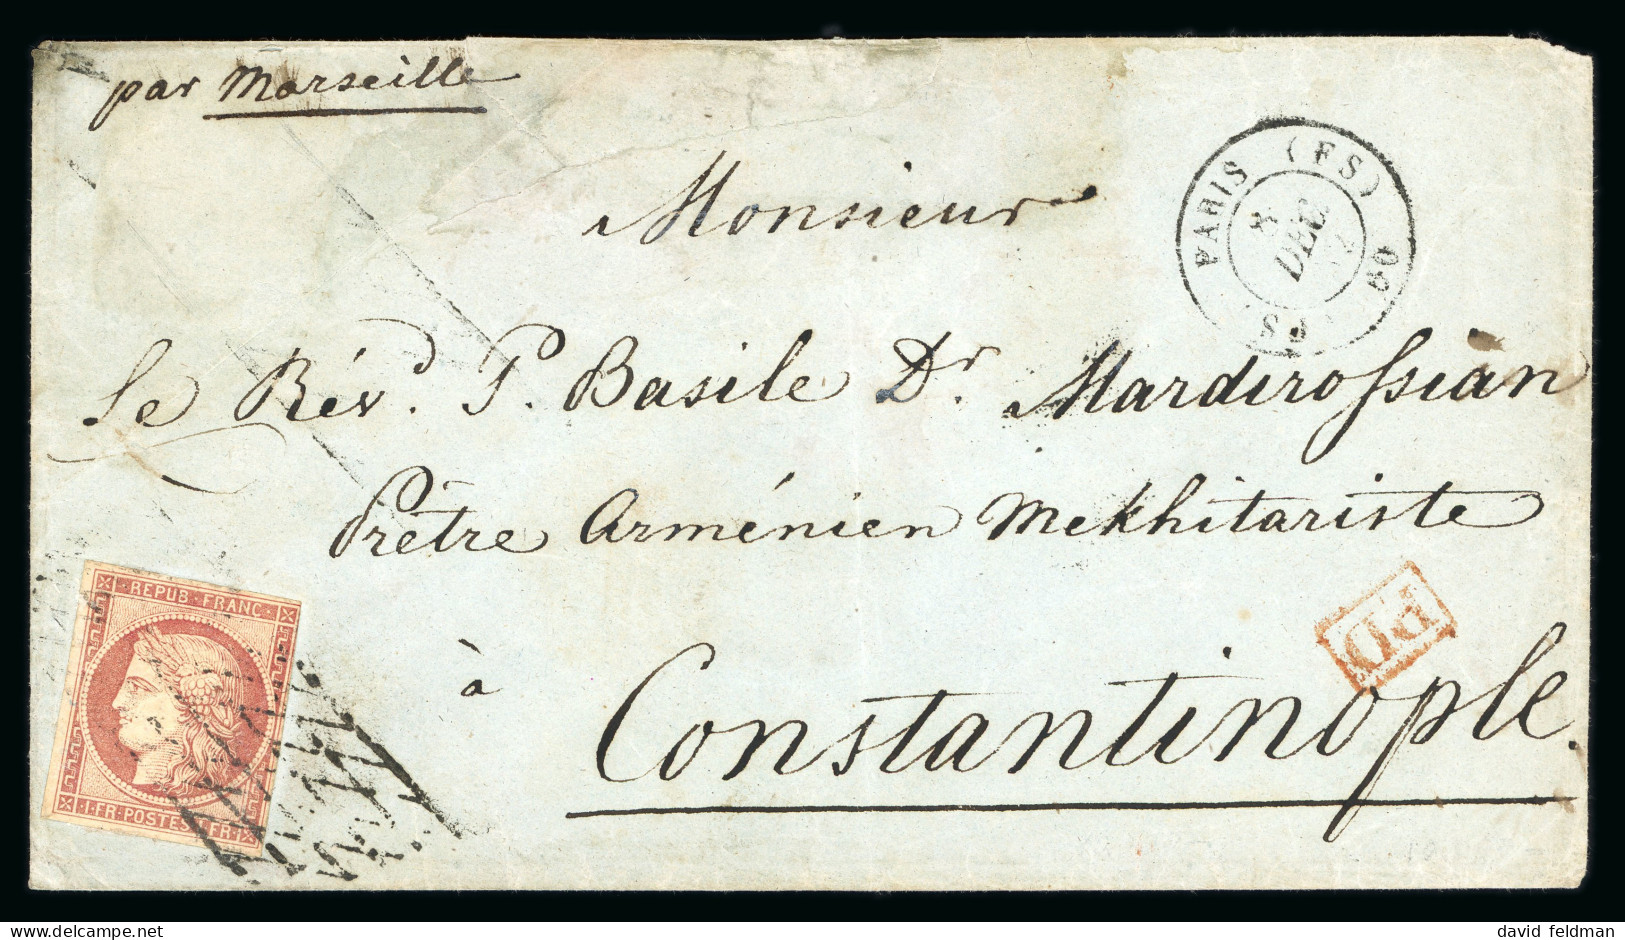 par Marseille
PARIS (FS)
8
DEC.
52
Monsieur
Le Rév.d P. Basile Dr. Mardirossian
Prêtre Arménien Mekhitariste
PD
à
Constantinople.
REPUB·FRANC·
·1·FR·POSTES·1·FR·
david feldman